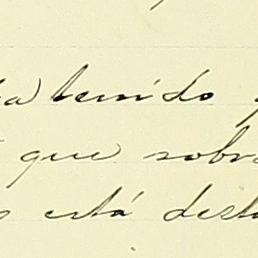 ha tenido
que sobr
está dest